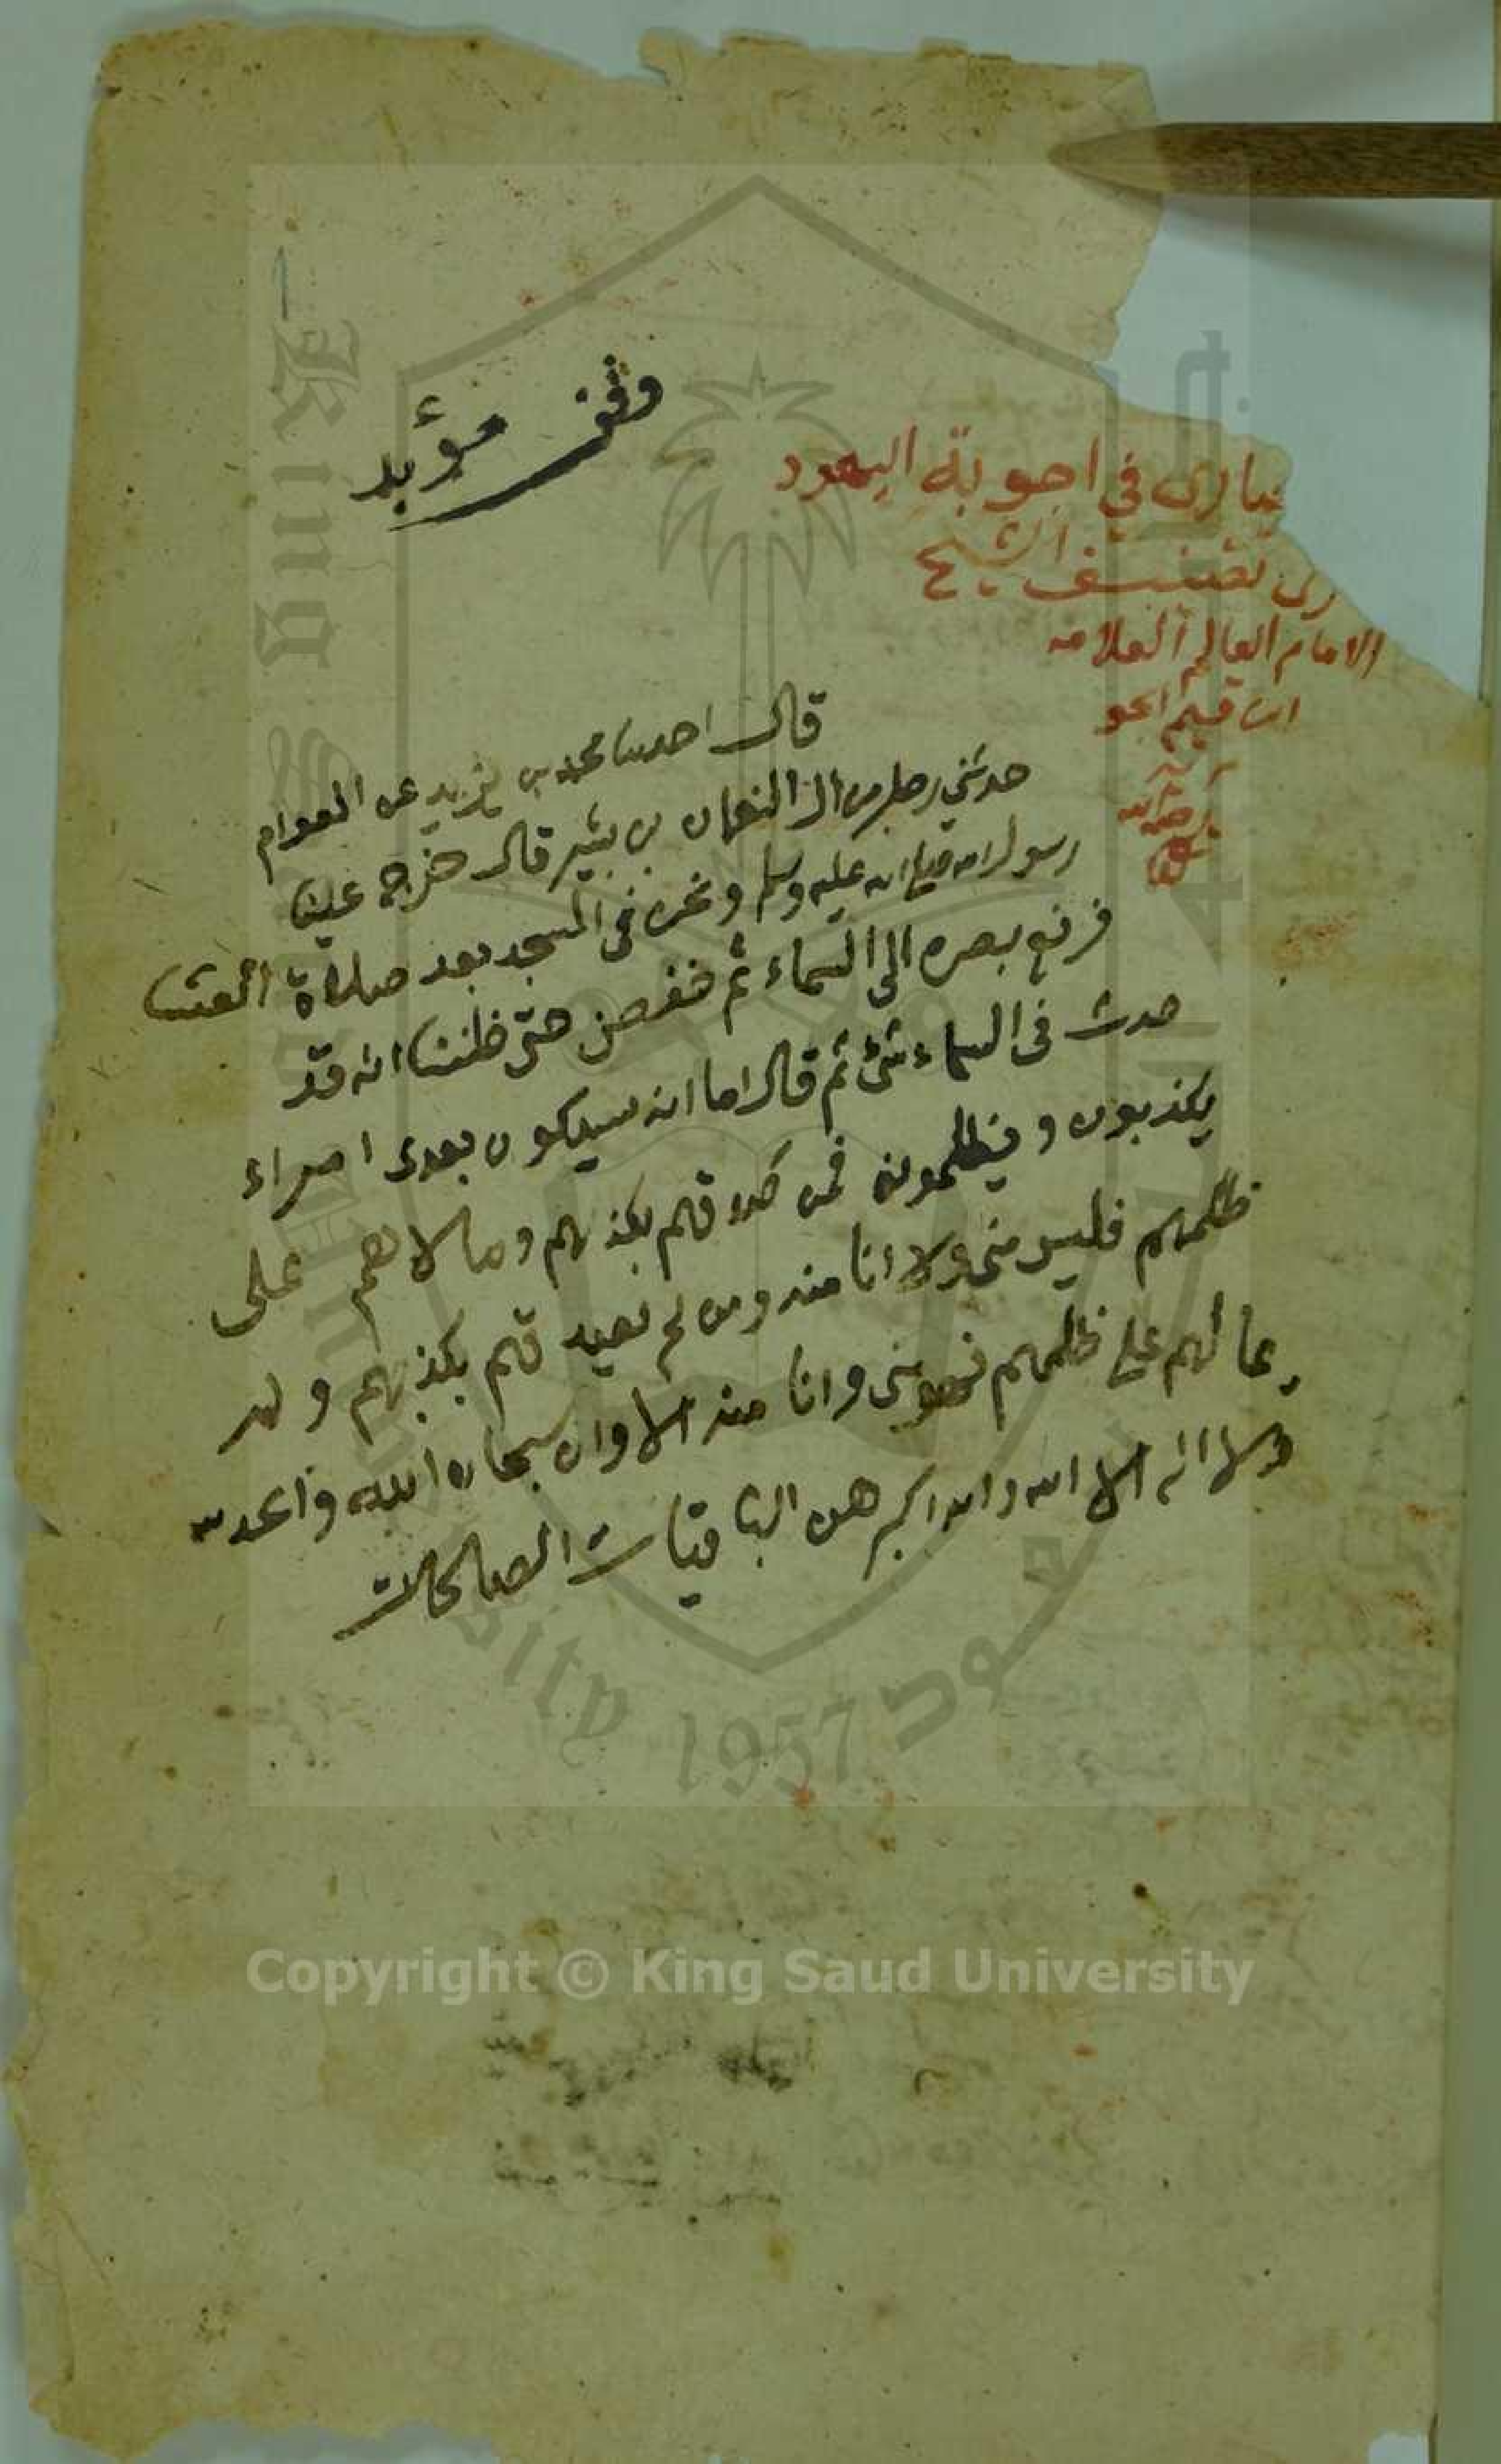 وقف مؤبد
يارى في اجوبة اليهود
رى تصنيف الشيخ
الامام العالم العلامه
ابن قيم الجو
قال احدسا محمد بن يزيد عن العوام
حدثني رجل من ال النعمان بن بشير قال خرج علينا
رسول الله صلى الله عليه وسلم ونحن في المسجد بعد صلاة العشا
فرفع بصره الى السماء ثم خفض حتى ظننا انه قد
حدث في السماء شئ ثم قال اما انه سيكون بعدى امراء
يكذبون ويظلمون فمن صدقهم بكذبهم ومالاهم على
ظلمهم فليس منى ولا انا منه ومن لم يصدقهم بكذبهم ولم
يمالهم على ظلمهم فهو منى وانا منه الا وان سبحان الله والحمد لله
ولا اله الا الله والله اكبر هن الباقيات الصالحات
King Saud University 1957
Copyright © King Saud University